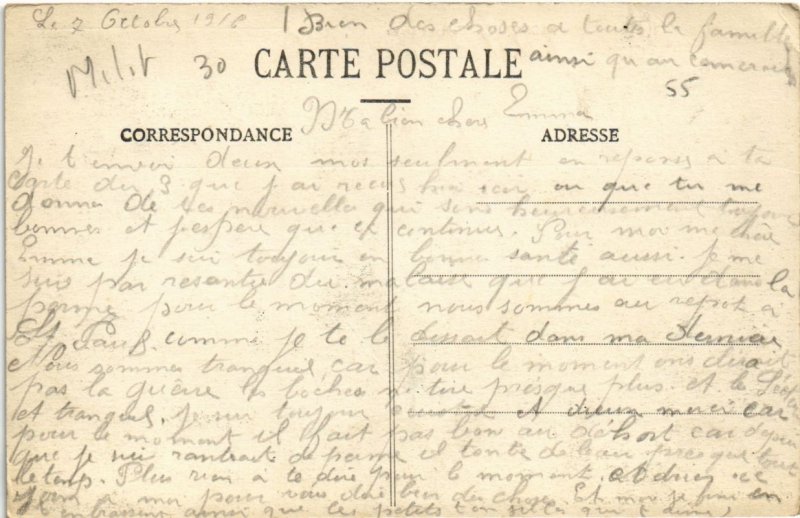 Le 7 Octobre 1916 Bien des choses a toute la famille
Milit 30 CARTE POSTALE ainsi qu au camarades
55
Ma bien chere Emma
CORRESPONDANCE ADRESSE
Je t envoi deux mos seulment en reponse a ta
carte du 3 que j ai recus hier car ou que tu me
donna de tes nouvella qui sons heureusement toujour
bonnes et j espere que ca continus. Pour moi ma chere
Emma je sui toujour en bonne sante aussi. je me
suis pas resentu du malaise que j ai eu dans la
parme pour le moment nous sommes au repot a
St Paul comme je te le dissait dans ma derniere
Nous sommes tranquil car pour le moment ons dirait
pas la guerre les boches ne tire presque plus. et le
et tranquil. je sui toujour a dieux merci car
pour le moment il fait pas bon au dehort car depui
que je sui rantrait de parme il tonbe de leau presque tout
le temp. Plus rien a te dire pour le moment,
a moi pour vous dire bien des choses. Et moi je fini en
t enbrassen ainsi que les petits ton